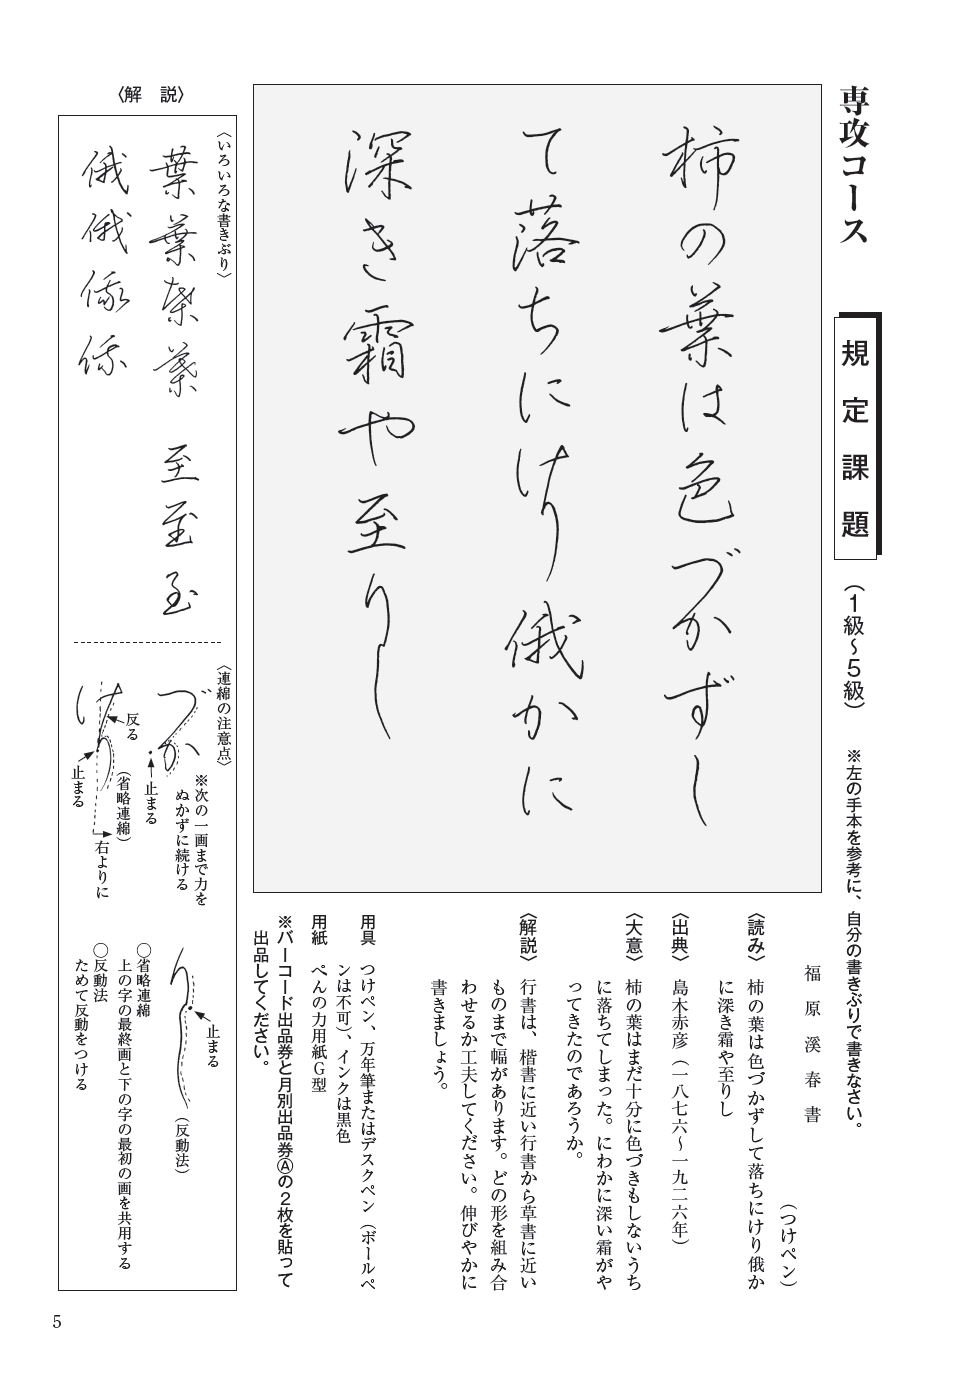 専攻コース
規定課題
（１級～５級）
※左の手本を参考に、自分の書きぶりで書きなさい。
福原溪春書
（つけペン）
柿の葉は色づかずし
て落ちにけり俄かに
深き霜や至りし
〈読み〉 柿の葉は色づかずして落ちにけり俄か
に深き霜や至りし
〈出典〉 島木赤彦（一八七六～一九二六年）
〈大意〉 柿の葉はまだ十分に色づきもしないうち
に落ちてしまった。にわかに深い霜がや
ってきたのであろうか。
〈解説〉 行書は、楷書に近い行書から草書に近い
ものまで幅があります。どの形を組み合
わせるか工夫してください。伸びやかに
書きましょう。
用具 つけペン、万年筆またはデスクペン（ボールペ
ンは不可）、インクは黒色
用紙 ぺんの力用紙Ｇ型
※バーコード出品券と月別出品券Ⓐの２枚を貼って
出品してください。
〈解 説〉
〈いろいろな書きぶり〉
葉葉葉葉 至至至
俄俄俄俄
〈連綿の注意点〉
づか
※次の一画まで力を
ぬかずに続ける
止まる
けり
反る
（省略連綿）
止まる
右よりに
りし
止まる
（反動法）
○省略連綿
上の字の最終画と下の字の最初の画を共用する
○反動法
ためて反動をつける
5